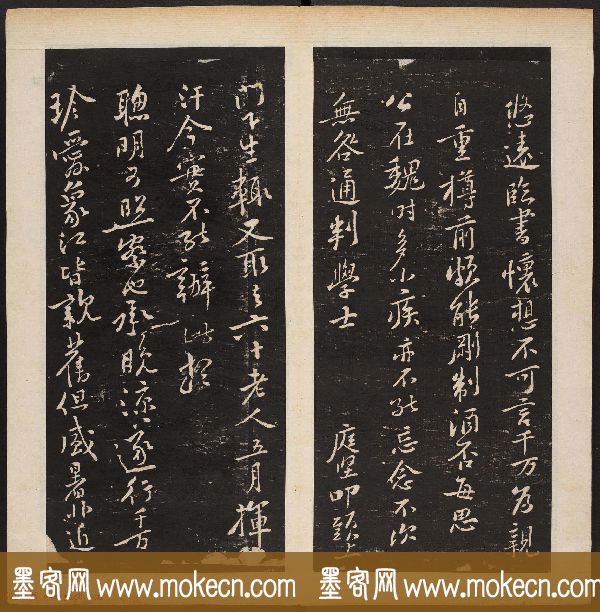 悠遠臨書懷想不可言千万為親
自重樽前頗能剛制酒否每思
公在魏时多小疾亦不能忘念不次
庭堅叩頭
無咎通判學士
门下生輒又取之六十老人五月揮
汗今實不能辦此
聰明可照察也承晚涼遂行千万
珍愛象江皆親舊但盛暑非近
墨客网 www.mokecn.com 墨客网 www.mokecn.com